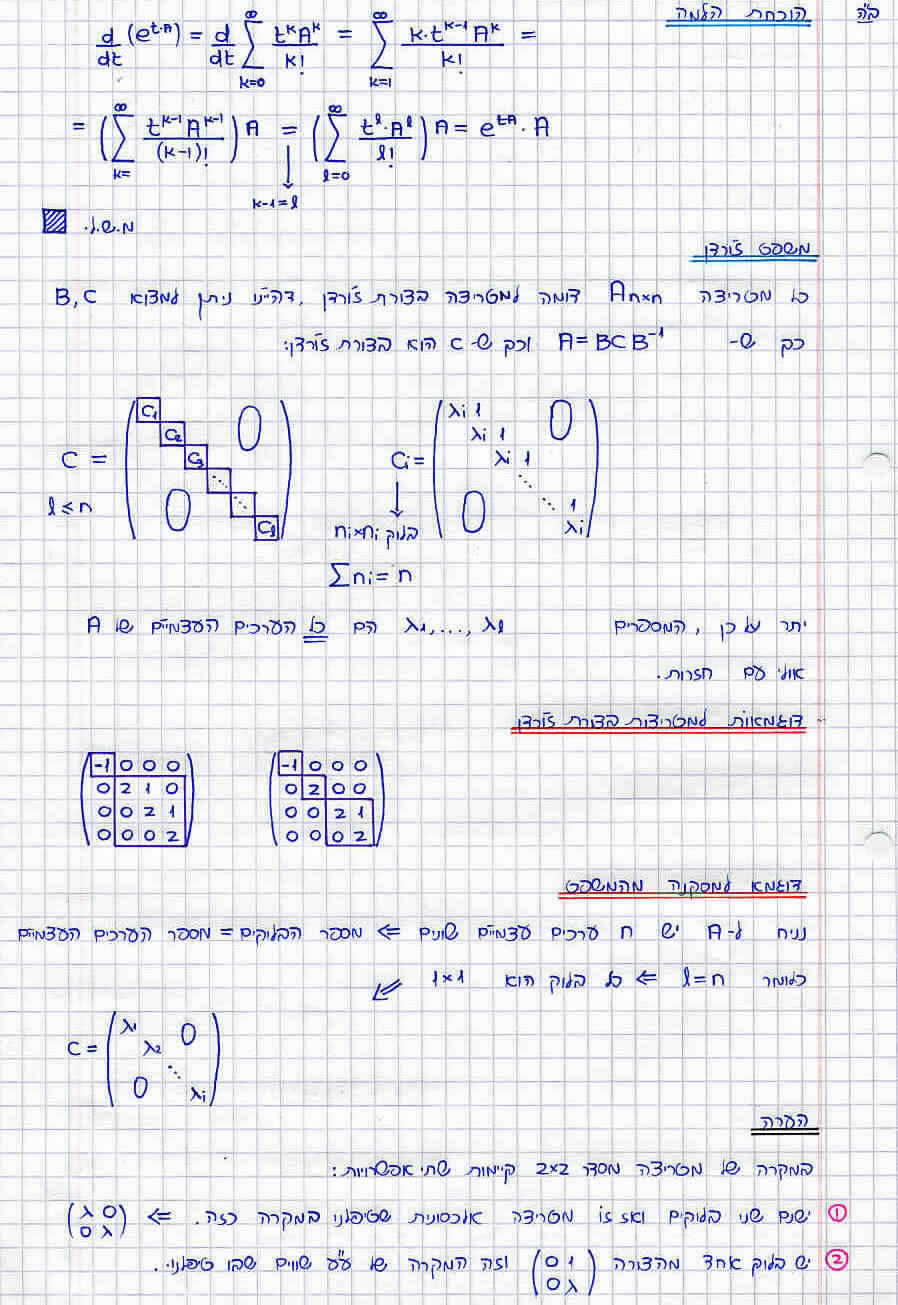 ב"ה
הוכחת הלמה
d/dt (e^{t·A}) = d/dt ∑_{k=0}^{∞} t^k A^k / k! = ∑_{k=1}^{∞} k·t^{k-1} A^k / k! =
= (∑_{k=}^{∞} t^{k-1} A^{k-1} / (k-1)!) A = (∑_{l=0}^{∞} t^l·A^l / l!) A = e^{tA}·A
k-1=l
מ.ש.ל.
משפט ז'ורדן
כל מטריצה A_{n×n} דומה למטריצה בצורת ז'ורדן, דהיינו ניתן למצוא B,C
כך ש- A=BCB^{-1} וכך ש-C הוא בצורת ז'ורדן:
C = (C1 C2 C3 ⋱ ⋱ Cl) 0 0
l ≤ n
Ci = (λi 1 λi 1 λi 1 ⋱ 1 λi) 0 0
בלוק ni×ni
∑ni = n
יתר על כן, המספרים λ1,...,λl הם כל הערכים העצמיים של A
אולי עם חזרות.
דוגמאות למטריצות בצורת ז'ורדן
(-1 0 0 0) (-1 0 0 0)
(0 2 1 0) (0 2 0 0)
(0 0 2 1) (0 0 2 1)
(0 0 0 2) (0 0 0 2)
דוגמא למסקנה מהמשפט
נניח ל-A יש n ערכים עצמיים שונים ⇐ מספר הבלוקים = מספר הערכים העצמיים
כלומר l=n ⇐ כל בלוק הוא 1×1
C = (λ1 λ2 ⋱ λi) 0 0
הערה
במקרה של מטריצה מסדר 2×2 קיימות שתי אפשרויות:
① ישנם שני בלוקים ואז זו מטריצה אלכסונית שטיפלנו במקרה כזה. ⇐ (λ 0 / 0 λ)
② יש בלוק אחד מהצורה (0 1 / 0 λ) וזה המקרה של ע"ע שווים שבו טיפלנו.